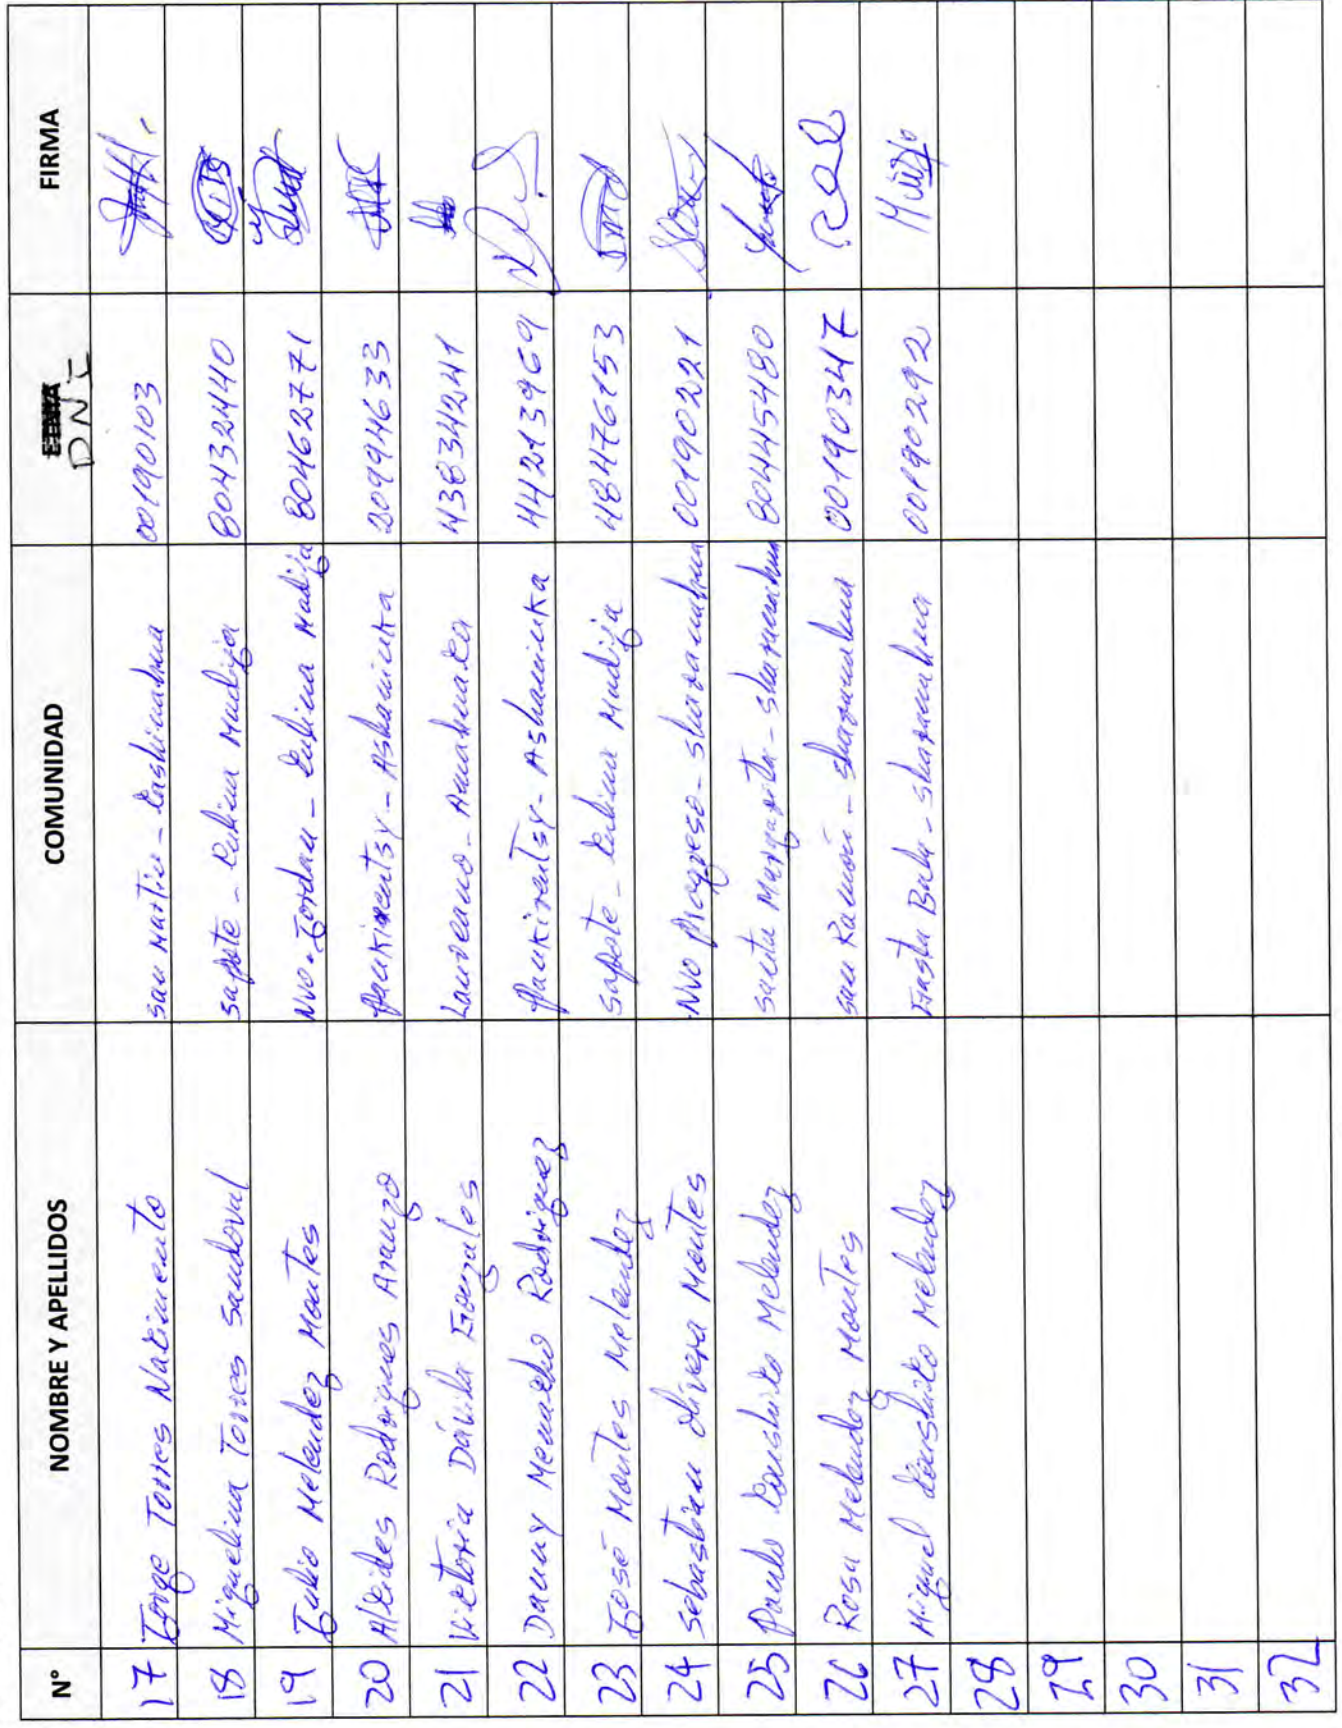 N° NOMBRE Y APELLIDOS COMUNIDAD DNI FIRMA
17 Jorge Torres Nacimento San Martin - Cashinahua 00190103
18 Miguelina Torres Sandoval Sapote - Culina Madija 80432440
19 Julio Melendez Montes Nvo. Jordan - Culina Madija 80462771
20 Alcides Rodrigues Arauzo Paukirentsy - Ashaninka 20994633
21 Victoria Dávila Gonzales Laureano - Amahuaca 43834241
22 Danny Menacho Rodriguez Paukirentsy - Ashaninka 44213969
23 José Montes Melendez Sapote - Culina Madija 48476153
24 Sebastian Olivera Montes Nvo Progreso - Sharanahua 00190221
25 Paulo Melendez Santa Margarita - Sharanahua 80445480
26 Rosa Melendez Montes San Ramón - Sharanahua 00190347
27 Miguel Melendez Gasta Bala - Sharanahua 00190292
28
29
30
31
32